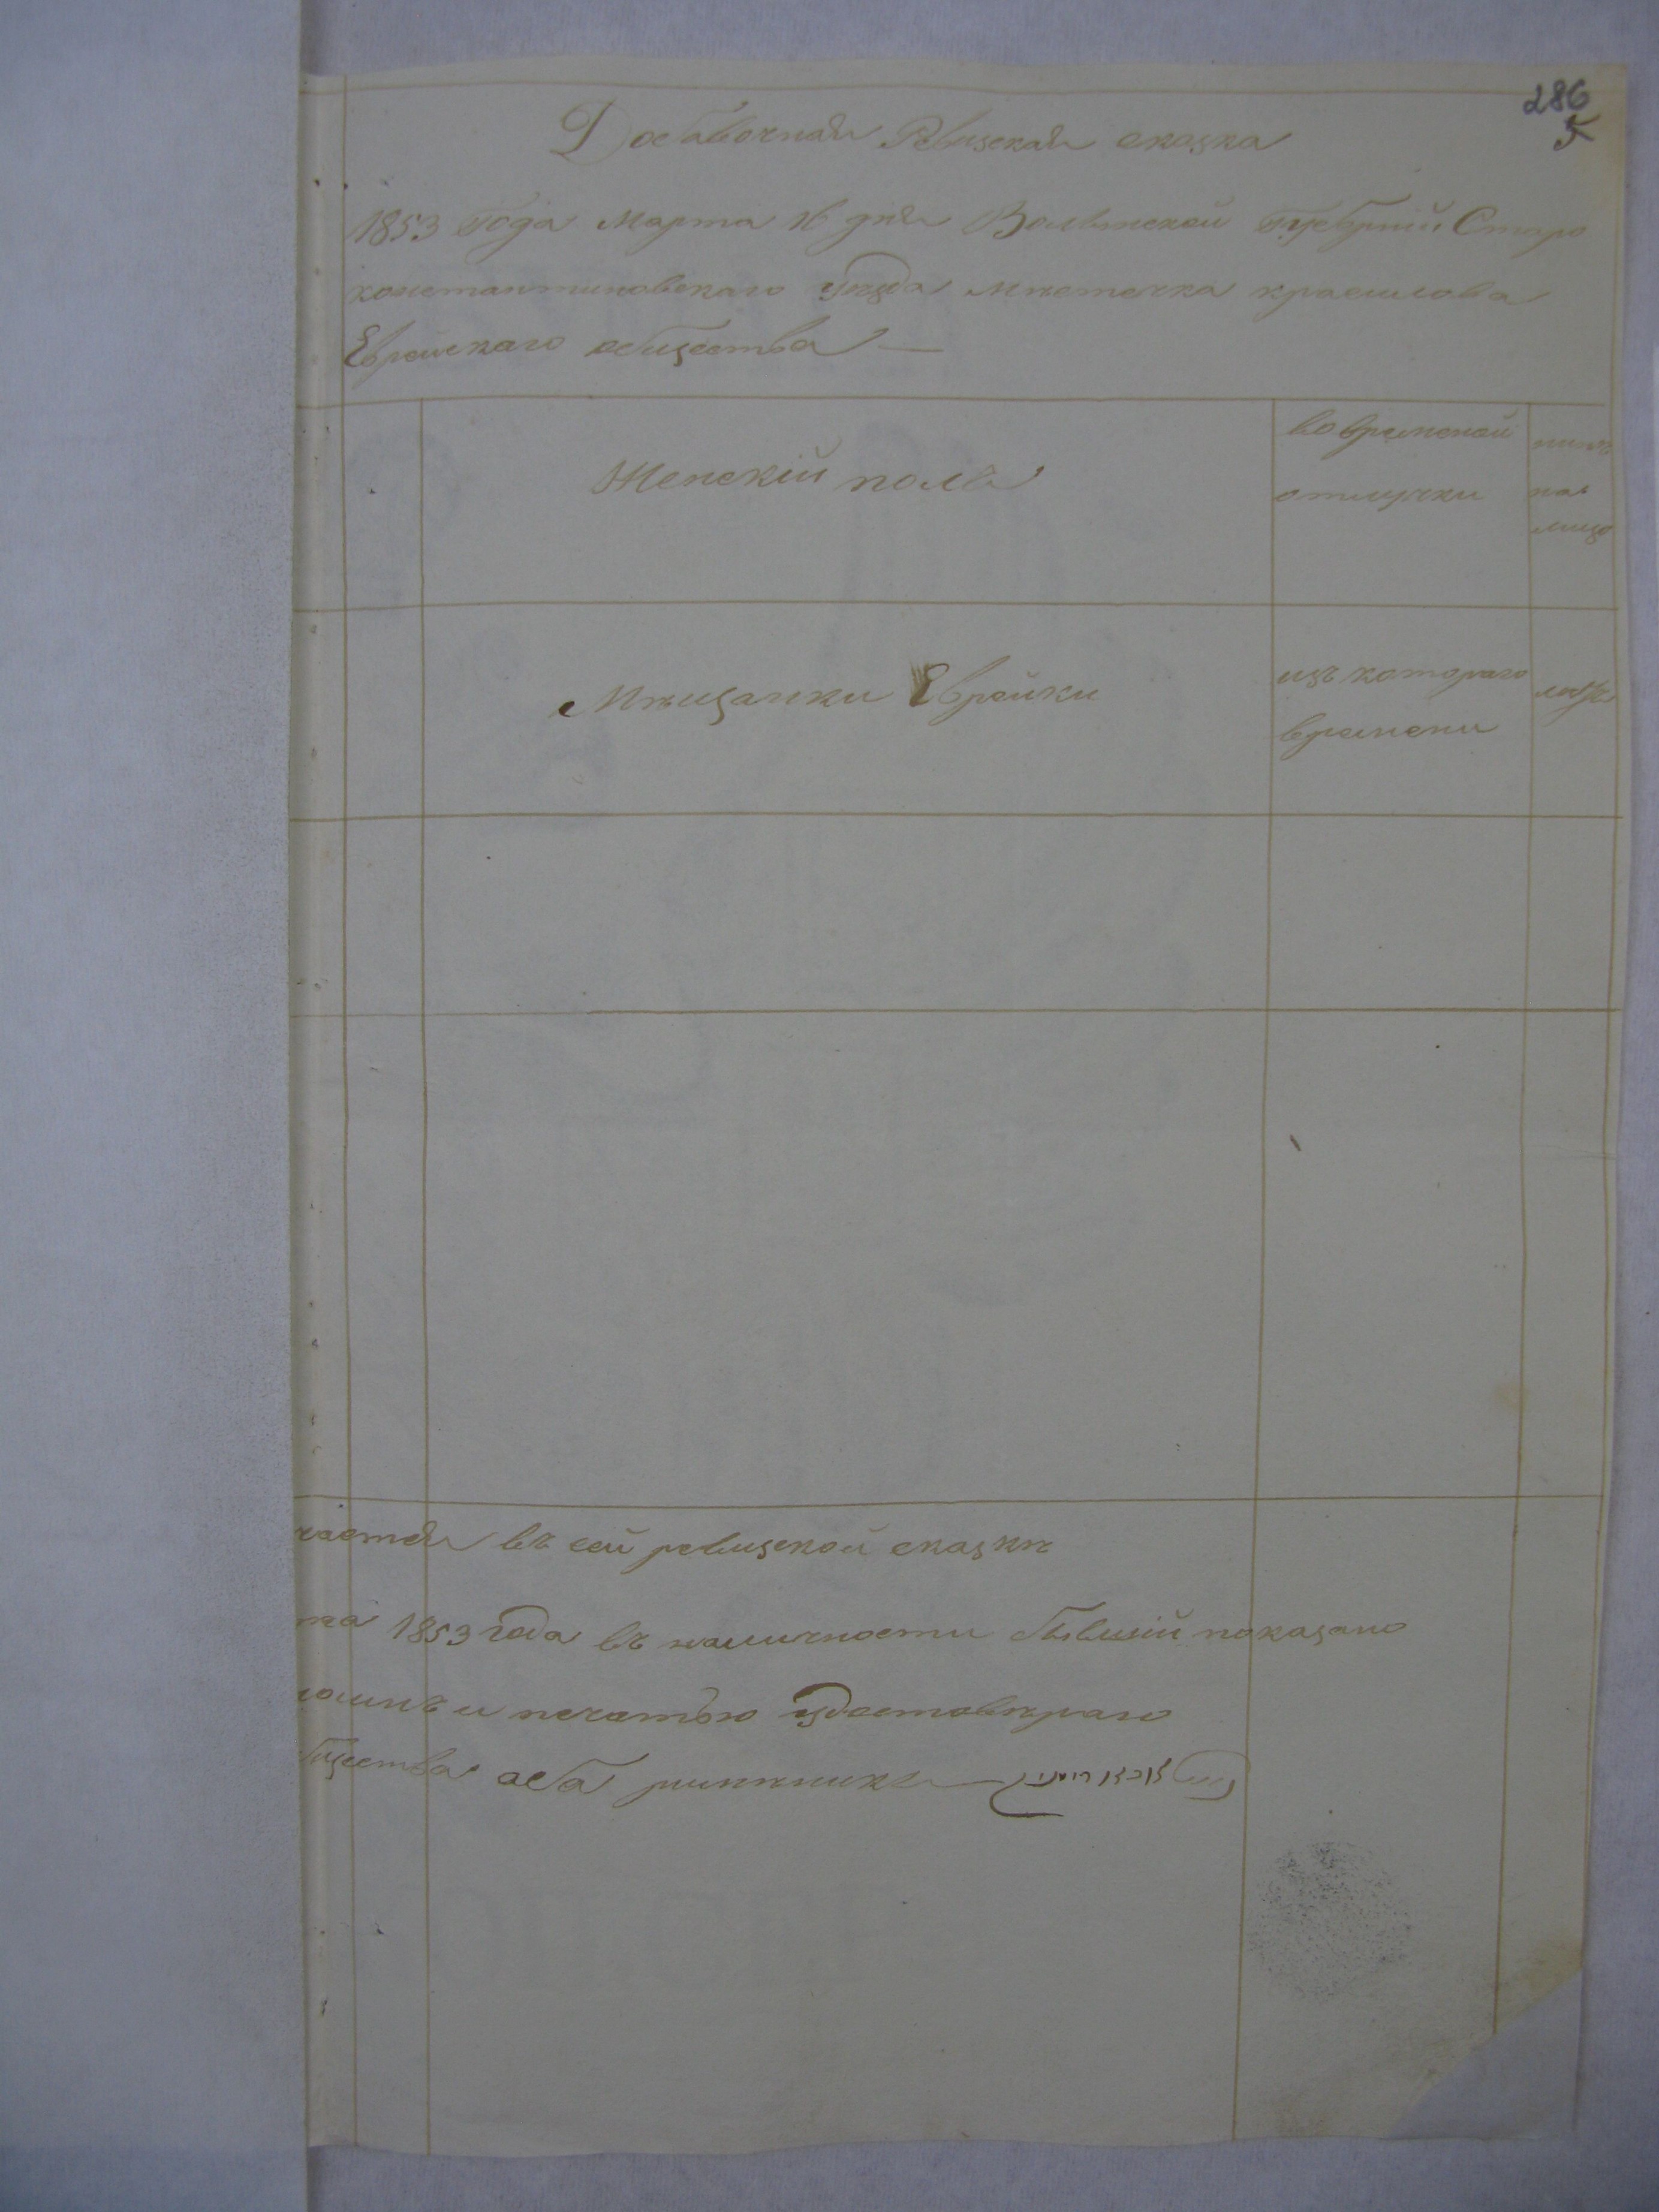 286
5
Добавочная Ревизская сказка
1853 года Марта 16 дня Волынской губерніи Старо
константиновскаго уѣзда мѣстечка красилова
Еврейскаго общества —
Женскій полъ
во временной
отлучки
нинѣ
на
лицо
Мѣщанки Еврейки
изъ котораго
времени
лѣта
чается въ сей ревизской сказкѣ
та 1853 года въ наличности бывшій показано
и печатью удостовѣраю
бщества аба